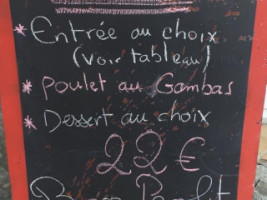 * Entrée au choix
(voir tableau)
* Poulet au Gambas
* Dessert au choix
22 €